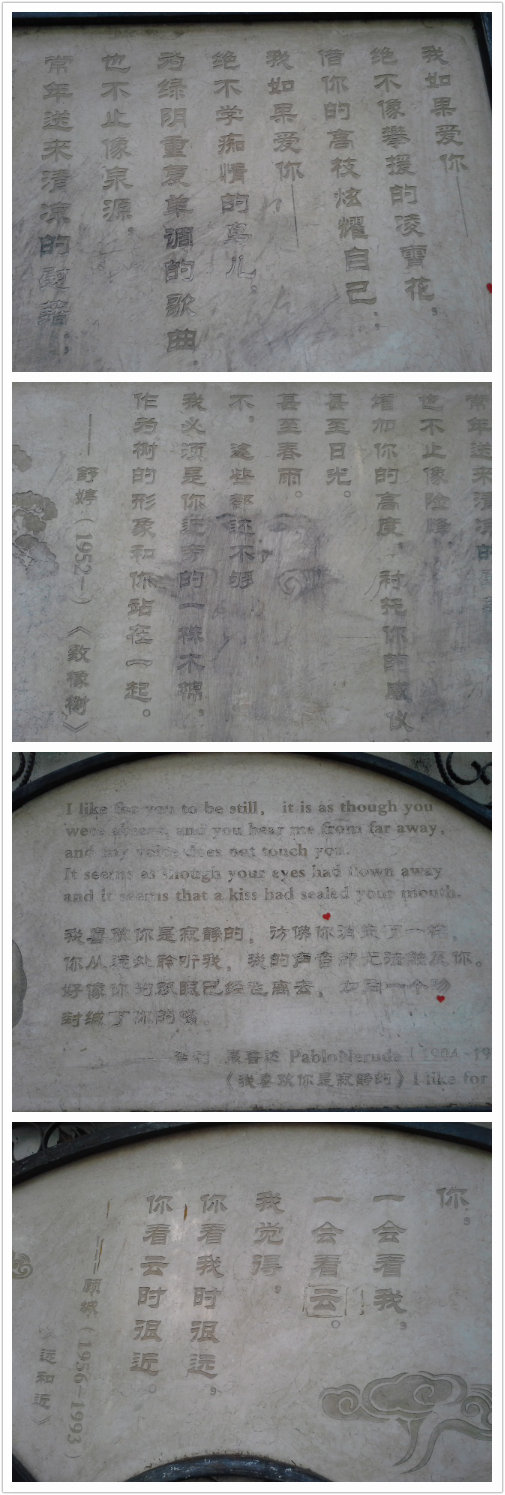 我如果爱你——
绝不像攀援的凌霄花，
借你的高枝炫耀自己；
我如果爱你——
绝不学痴情的鸟儿，
为绿阴重复单调的歌曲，
也不止像泉源，
常年送来清凉的慰藉；
常年送来清凉的
也不止像险峰
增加你的高度，衬托你的威仪
甚至日光。
甚至春雨。
不，这些都还不够
我必须是你近旁的一株木棉，
作为树的形象和你站在一起。
——舒婷（1952—）《致橡树》
I like for you to be still, it is as though you
were absent, and you hear me from far away,
and my voice does not touch you.
It seems as though your eyes had flown away
and it seems that a kiss had sealed your mouth.
我喜欢你是寂静的，彷佛你消失了一样，
你从远处聆听我，我的声音却无法触及你。
好像你的双眼已经飞离去，如同一个吻
封缄了你的嘴。
智利 聂鲁达 PabloNeruda（1904-19
《我喜欢你是寂静的》I like for
你，
一会看我，
一会看云。
我觉得，
你看我时很远，
你看云时很近。
——顾城（1956-1993）
《远和近》